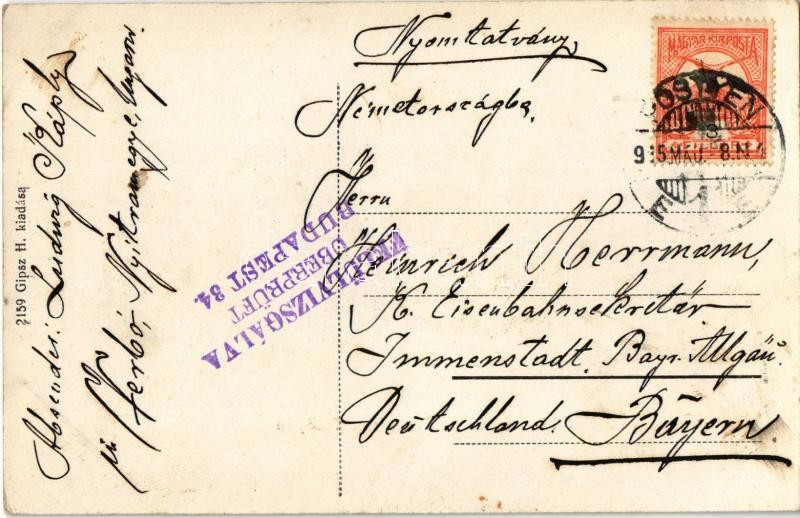 Nyomtatvány
Németországba
Herrn
Heinrich Herrmann,
K. Eisenbahnsekretär
Immenstadt, Bayr. Allgäu
Deutschland. Bayern
MAGYAR KIR. POSTA
PÖSTYÉN
915 MÁJ. 8. N 4
FELÜLVIZSGÁLVA
ÜBERPRÜFT
BUDAPEST 34.
Absender: Ludwig
in Verbó, Nyitramegye, Ungarn.
2159 Gipsz H. kiadása